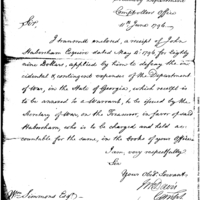 Treasury Department
Comptrollers Office
11th June 1796
Sir,
I transmit enclosed, a receipt of John
Habersham Esquire dated May 2d 1796 for Eighty
nine Dollars, applied by him to defray the in-
cidental & contingent expenses of the Department
of War, in the State of Georgia, which receipt is
to be accessed to a Warrant, to be issued by the Sec-
retary of War, on the Treasurer, in favor of said
Habersham, who is to be charged and held ac-
countable for the same, in the books of your Office.
I am, very respectfully
Sir
Your Obt Servant.
Wm Simmons Esqr